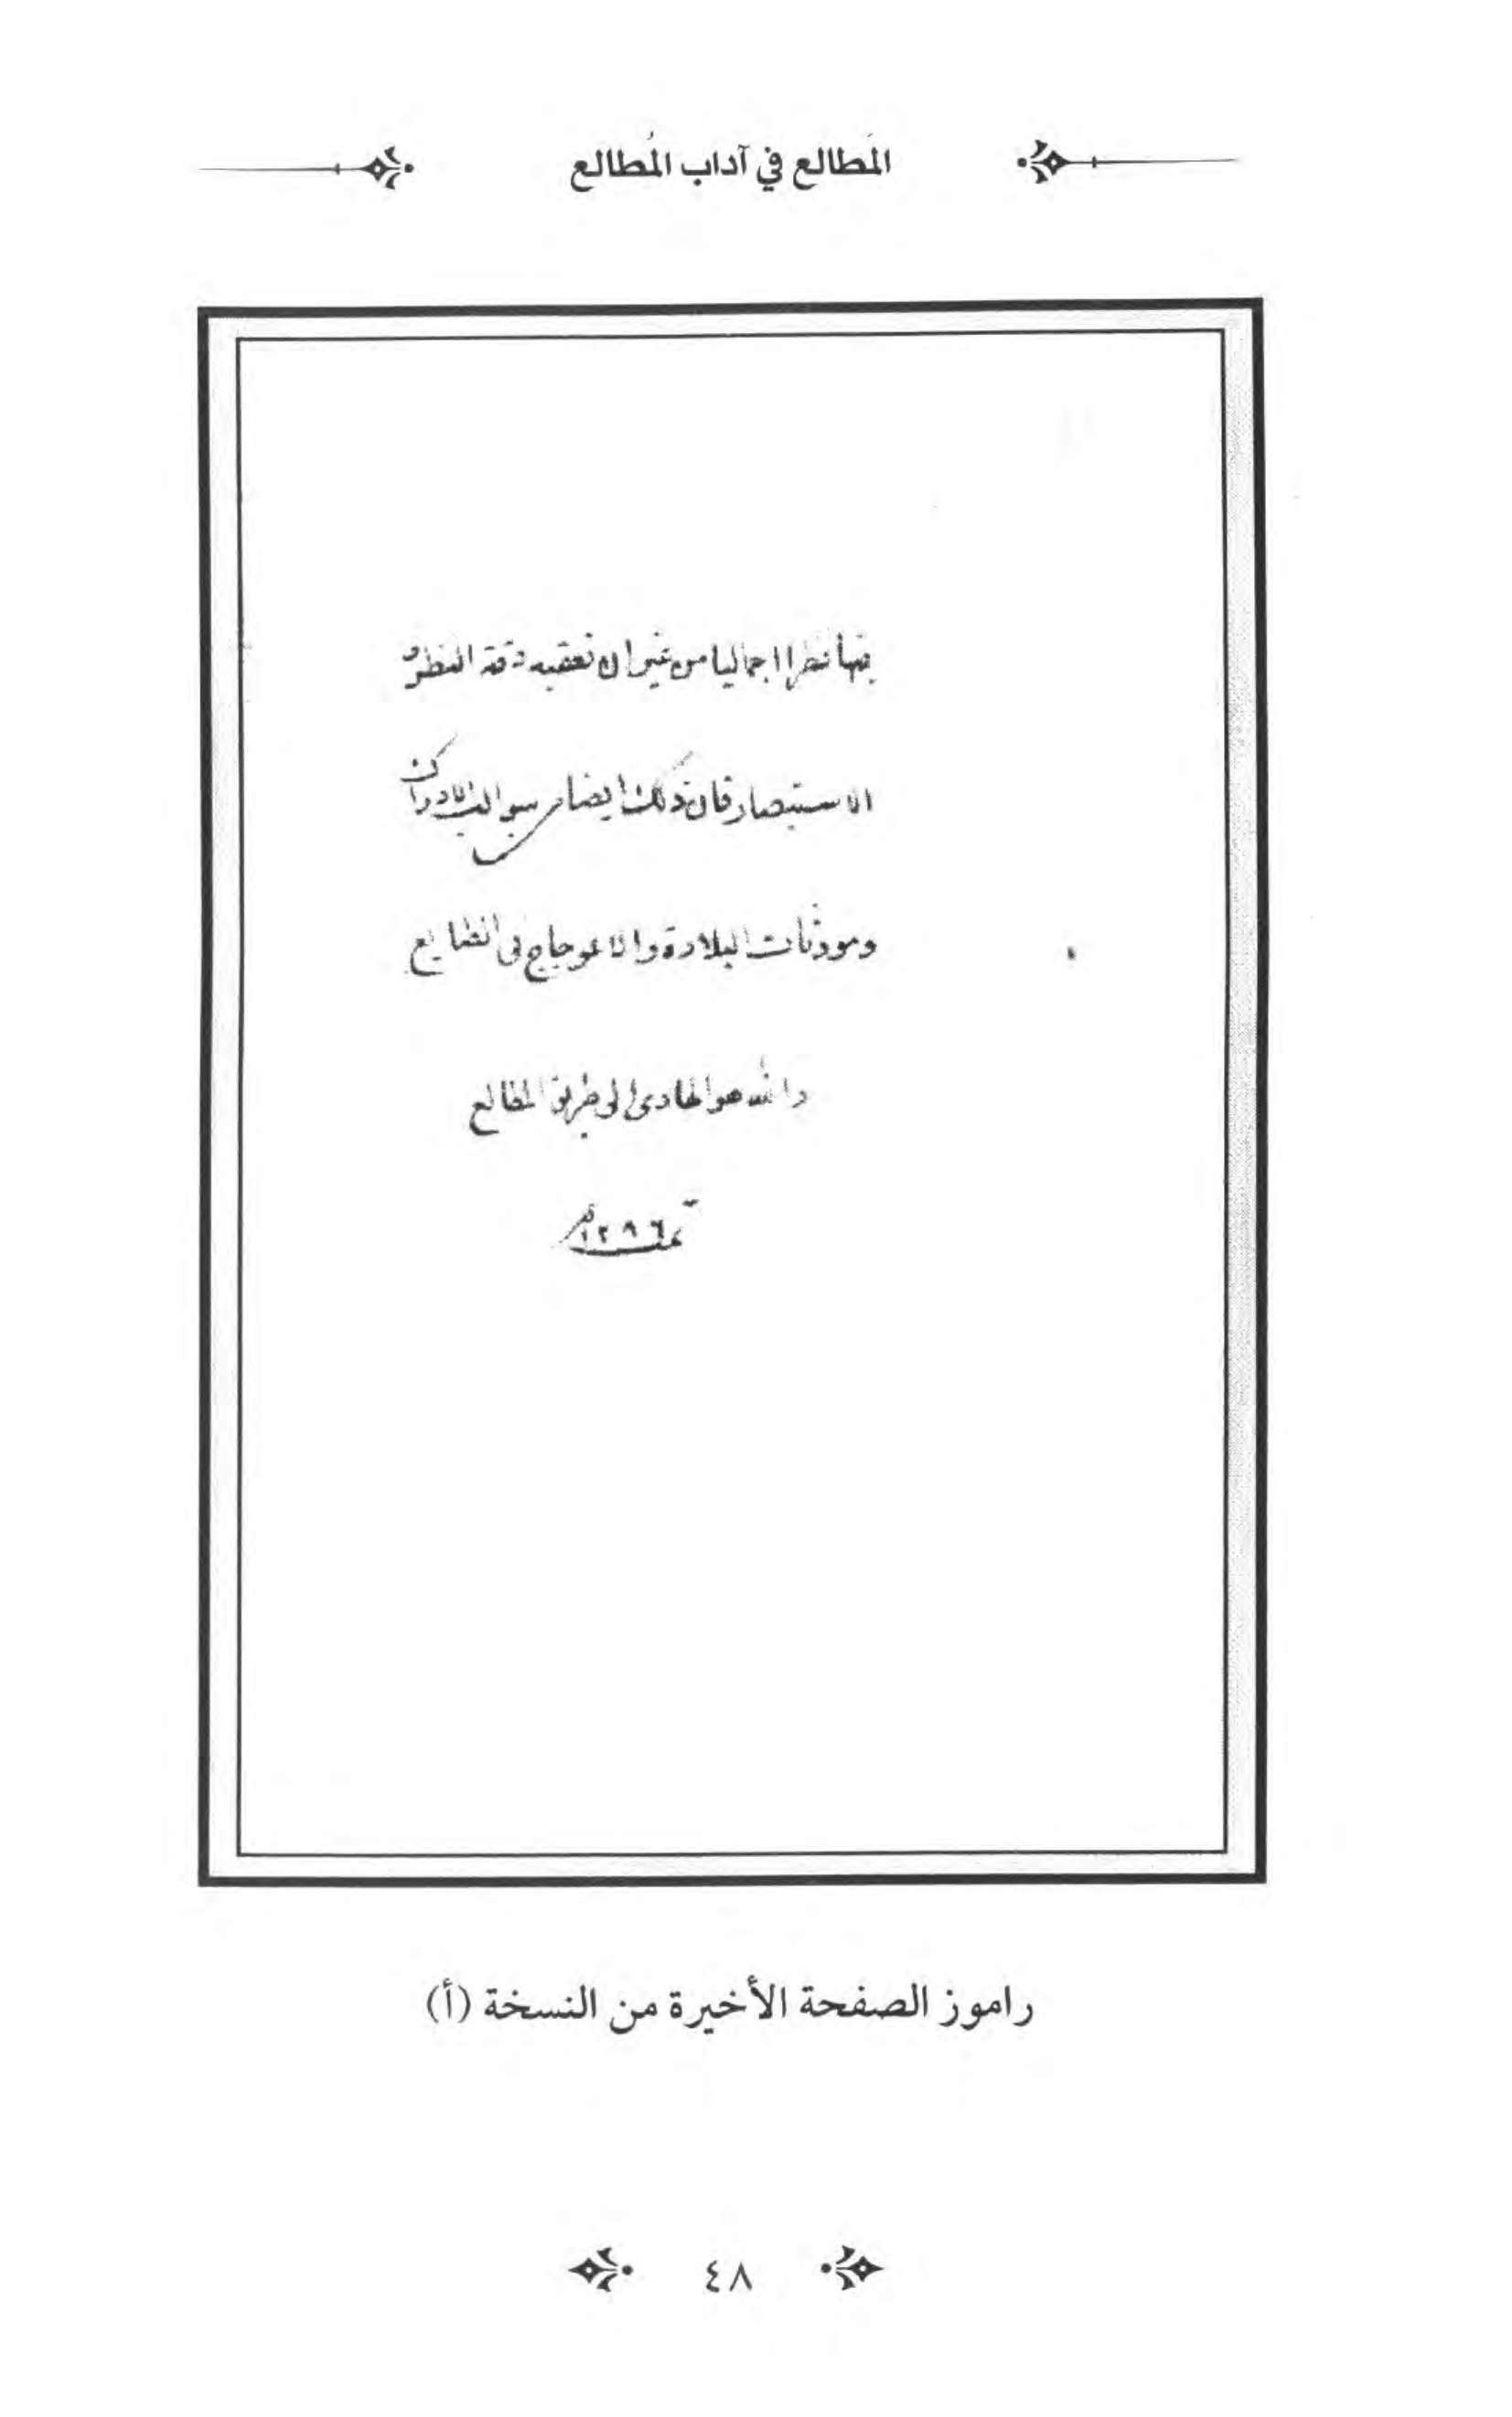 المَطالع في آداب المُطالع
فيها نظرا اجماليا من غير ان تعقبه دقة النظر و
الاستبصار فان ذلك ايضا من سوالب الادراك
ومورثات البلادة والاعوجاج في الطبايع
والله هو الهادي الى طريق المطالع
تمت ١٢٩٦
راموز الصفحة الأخيرة من النسخة (أ)
٤٨